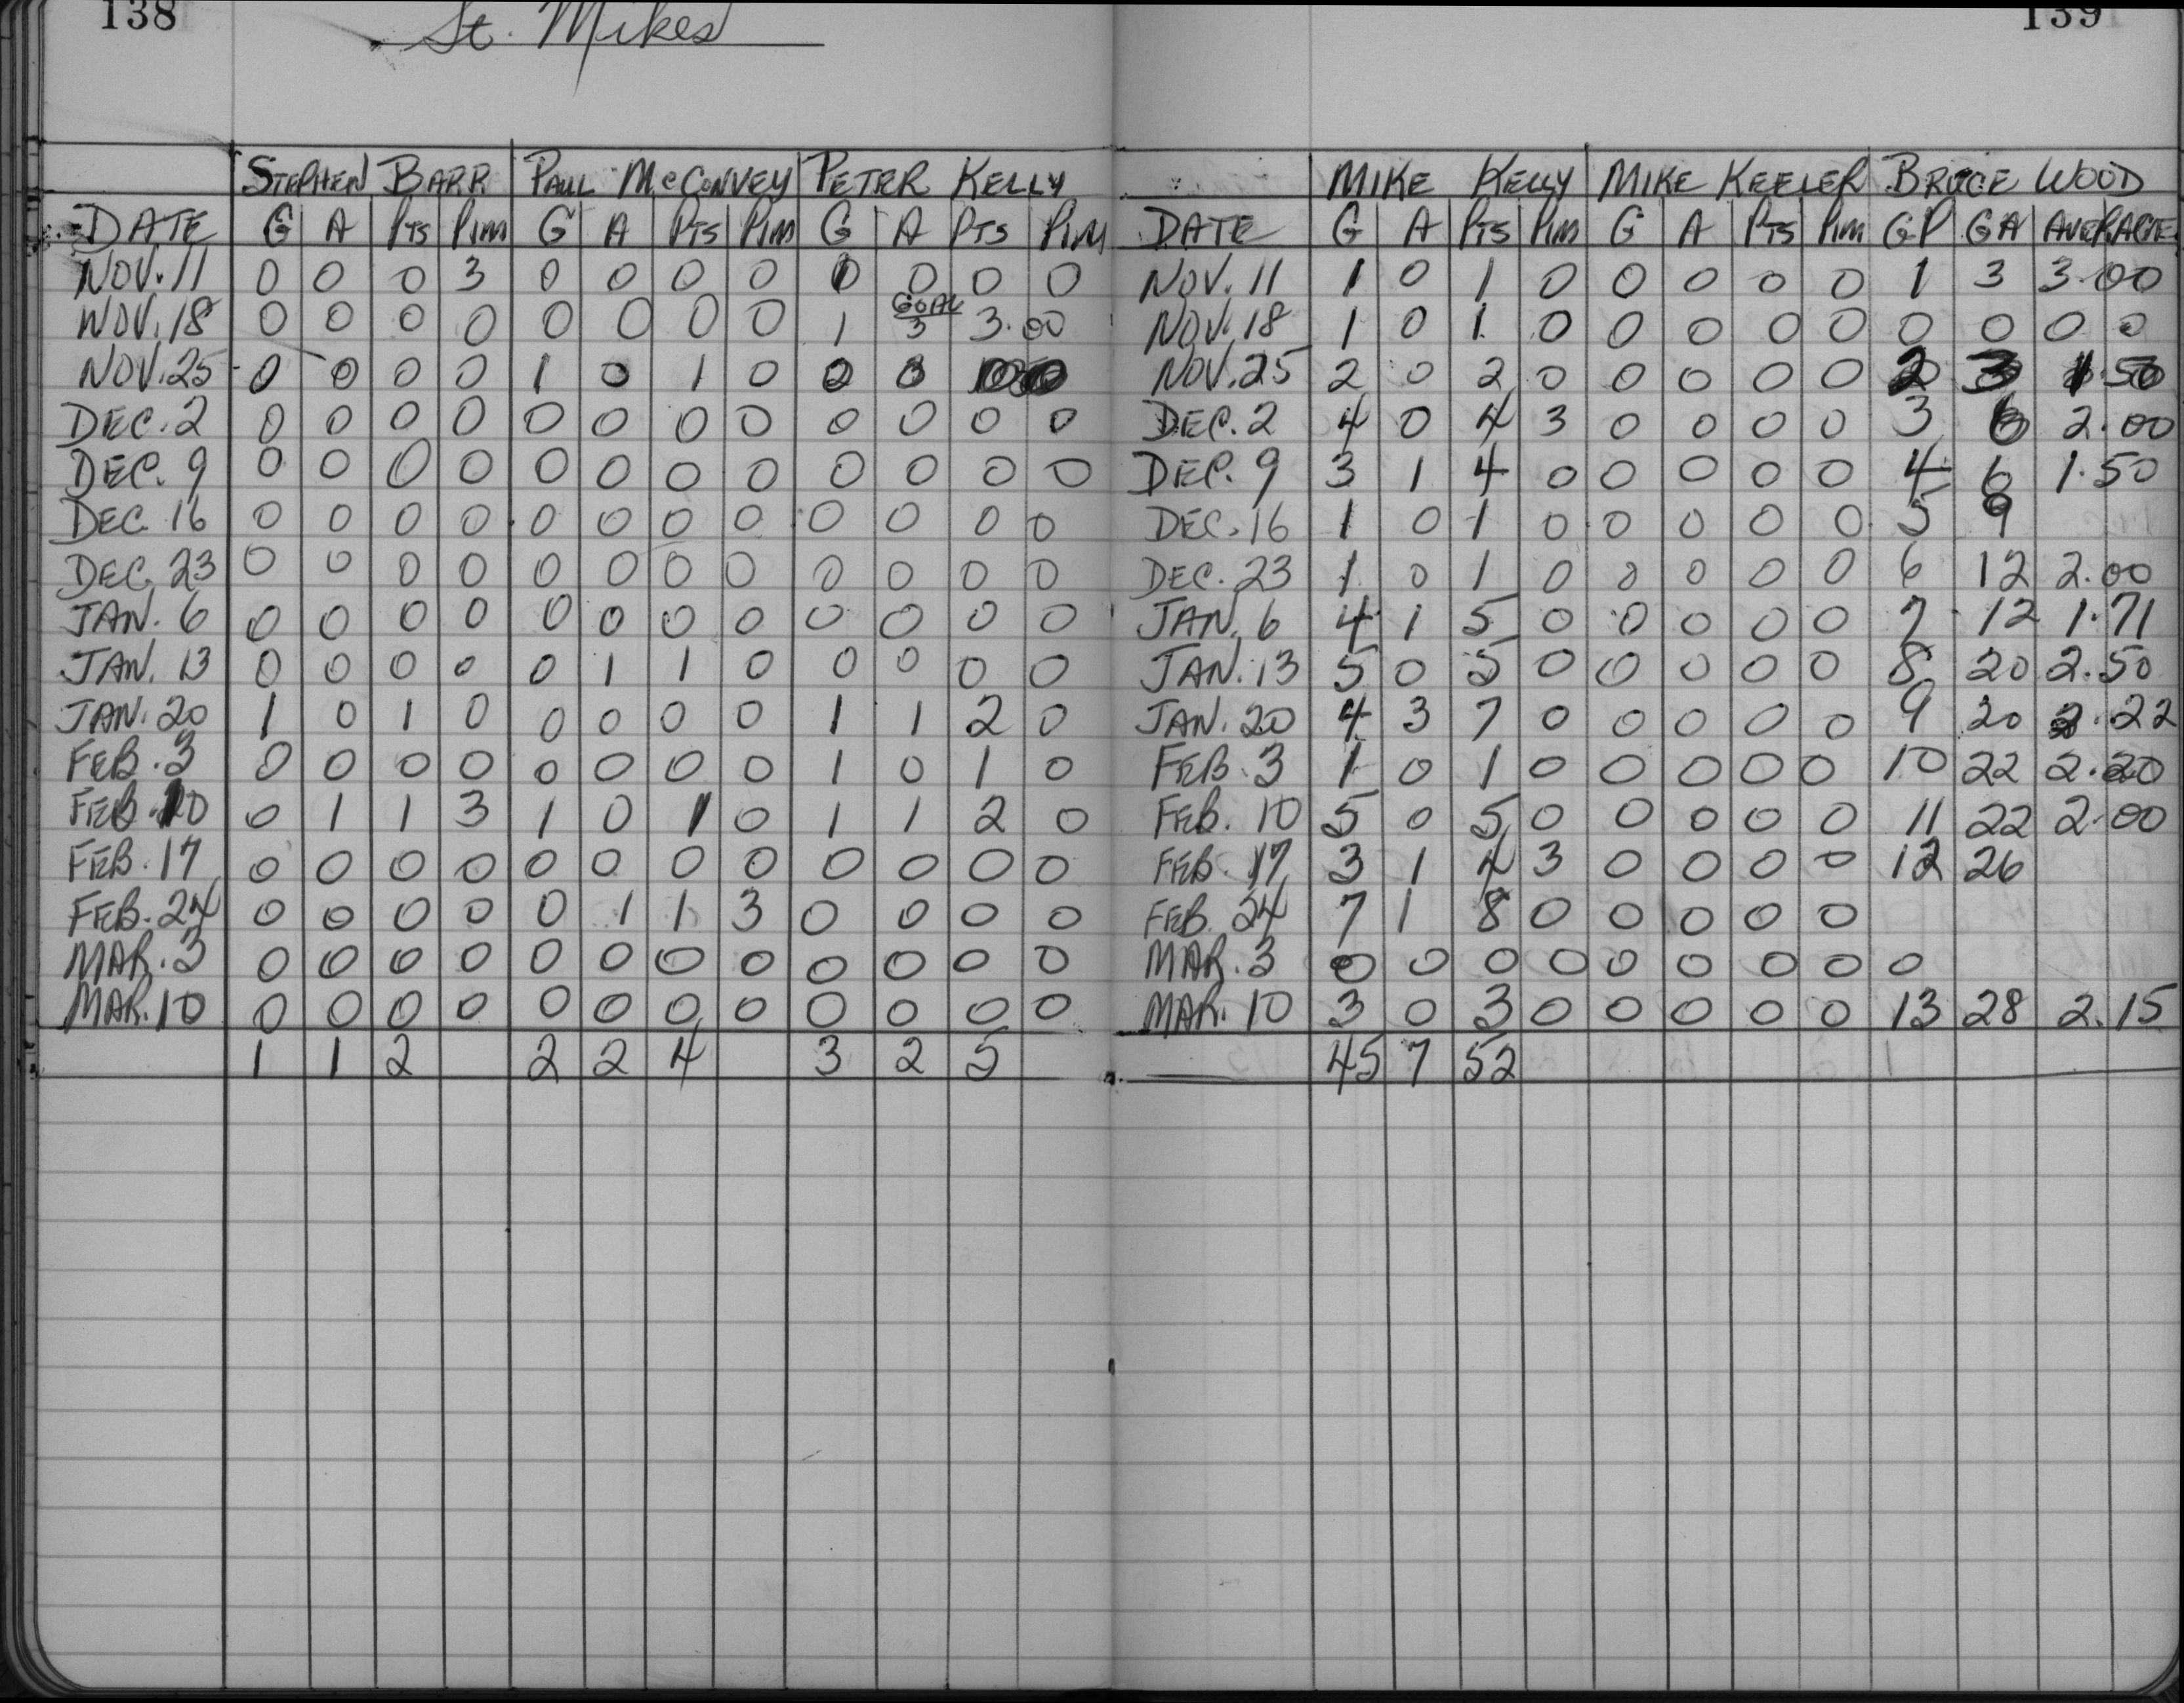 138
St. Mikes
STEPHEN BARR PAUL McCONVEY PETER KELLY
DATE G A PTS PIM G A PTS PIM G A PTS PIM
NOV. 11 0 0 0 3 0 0 0 0 0 0 0
NOV. 18 0 0 0 0 0 0 0 0 1 GOAL 3 3.00
NOV. 25 0 0 0 0 1 0 1 0 0
DEC. 2 0 0 0 0 0 0 0 0 0 0 0 0
DEC. 9 0 0 0 0 0 0 0 0 0 0 0 0
DEC 16 0 0 0 0 0 0 0 0 0 0 0 0
DEC. 23 0 0 0 0 0 0 0 0 0 0 0 0
JAN. 6 0 0 0 0 0 0 0 0 0 0 0 0
JAN. 13 0 0 0 0 0 1 1 0 0 0 0 0
JAN. 20 1 0 1 0 0 0 0 0 1 1 2 0
FEB. 3 0 0 0 0 0 0 0 0 1 0 1 0
FEB. 10 0 1 1 3 1 0 1 0 1 1 2 0
FEB. 17 0 0 0 0 0 0 0 0 0 0 0 0
FEB. 24 0 0 0 0 0 1 1 3 0 0 0 0
MAR. 3 0 0 0 0 0 0 0 0 0 0 0 0
MAR. 10 0 0 0 0 0 0 0 0 0 0 0 0
1 1 2 2 2 4 3 2 5
139
MIKE KELLY MIKE KEELER BRUCE WOOD
DATE G A PTS PIM G A PTS PIM GP GA AVERAGE
NOV. 11 1 0 1 0 0 0 0 0 1 3 3.00
NOV. 18 1 0 1 0 0 0 0 0 0 0 0 0
NOV. 25 2 0 2 0 0 0 0 0 2 3 1.50
DEC. 2 4 0 4 3 0 0 0 0 3 6 2.00
DEC. 9 3 1 4 0 0 0 0 0 4 6 1.50
DEC. 16 1 0 1 0 0 0 0 0 5 9
DEC. 23 1 0 1 0 0 0 0 0 6 12 2.00
JAN. 6 4 1 5 0 0 0 0 0 7 12 1.71
JAN. 13 5 0 5 0 0 0 0 0 8 20 2.50
JAN. 20 4 3 7 0 0 0 0 0 9 20 2.22
FEB. 3 1 0 1 0 0 0 0 0 10 22 2.20
FEB. 10 5 0 5 0 0 0 0 0 11 22 2.00
FEB. 17 3 1 4 3 0 0 0 0 12 26
FEB. 24 7 1 8 0 0 0 0 0
MAR. 3 0 0 0 0 0 0 0 0 0
MAR. 10 3 0 3 0 0 0 0 0 13 28 2.15
45 7 52